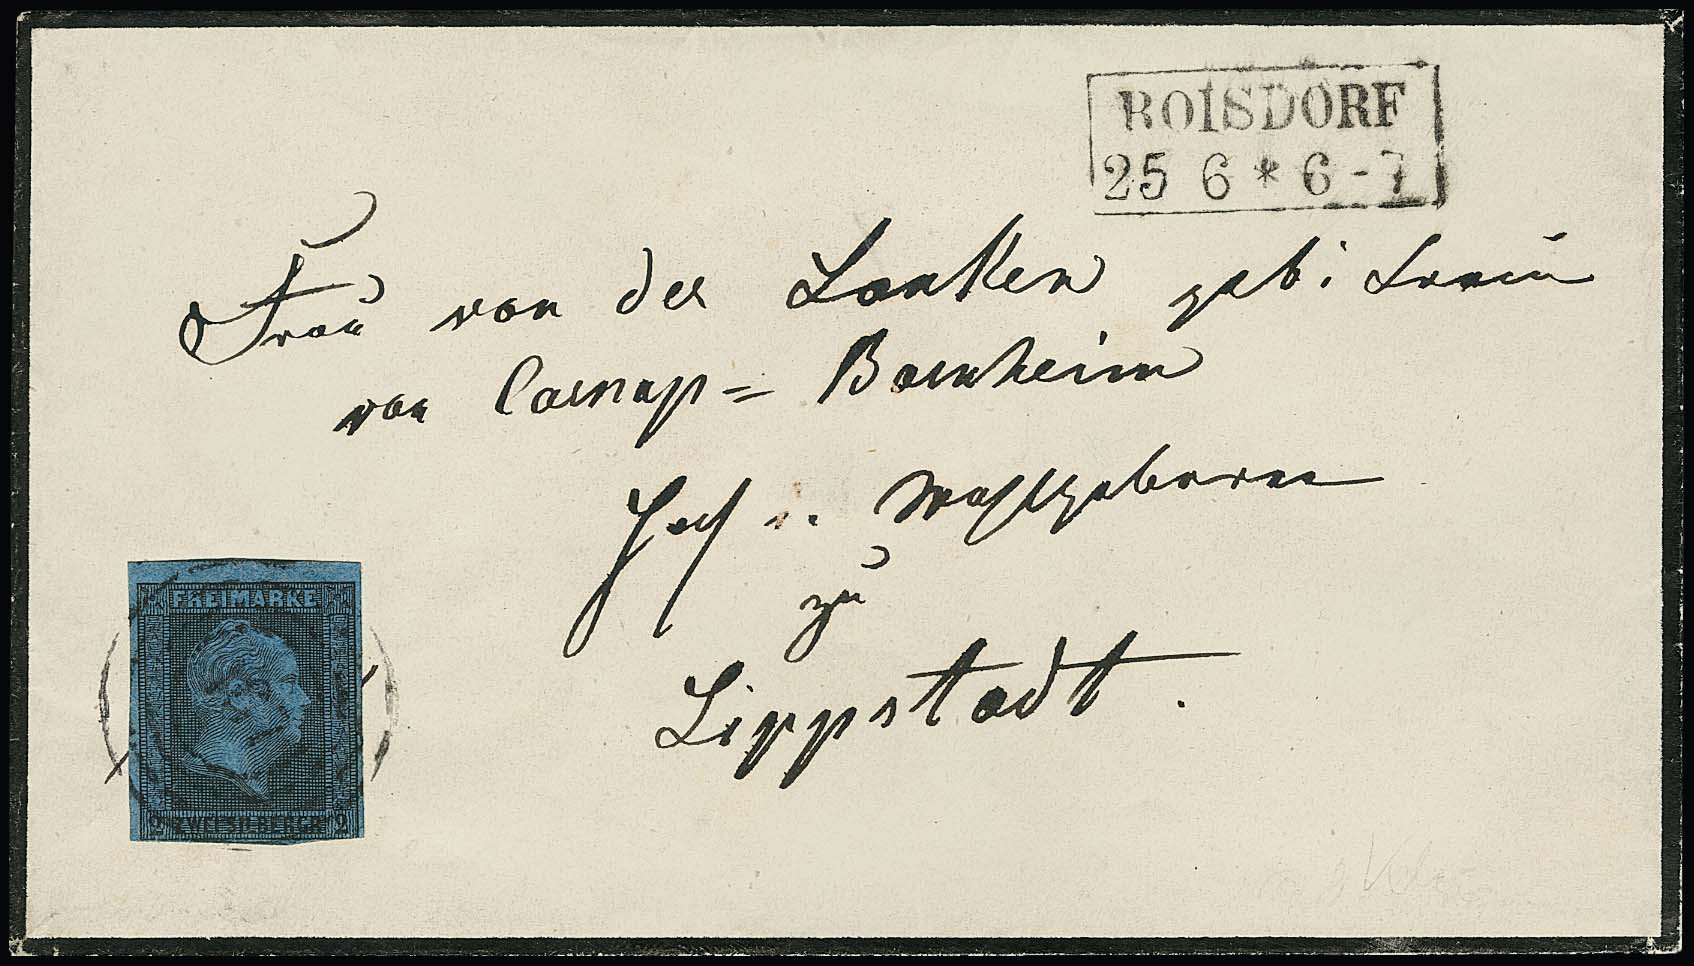 ROISDORF
25 6 * 6-7
Frau von der Lanken geb: Freiin
von Carnap = Bornheim
Hoch u. Wohlgeboren
zu
Lippstadt.
FREIMARKE
2 ZWEI SILBERGR. 2